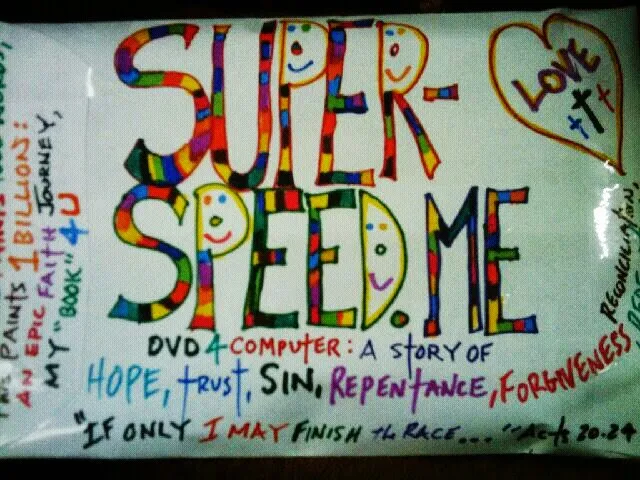 SUPER-
SPEED.ME
LOVE
DVD 4 COMPUTER: A STORY OF
HOPE, TRUST, SIN, REPENTANCE, FORGIVENESS
RECONCILIATION,
"IF ONLY I MAY FINISH the RACE..." Acts 20.24
PAINTS 1 BILLION:
AN EPIC FAITH JOURNEY,
MY "BOOK" 4 U